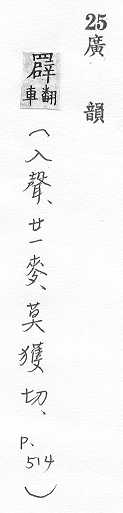 25 廣韻
翻車(入聲、廿一麥、莫獲切、P.514)